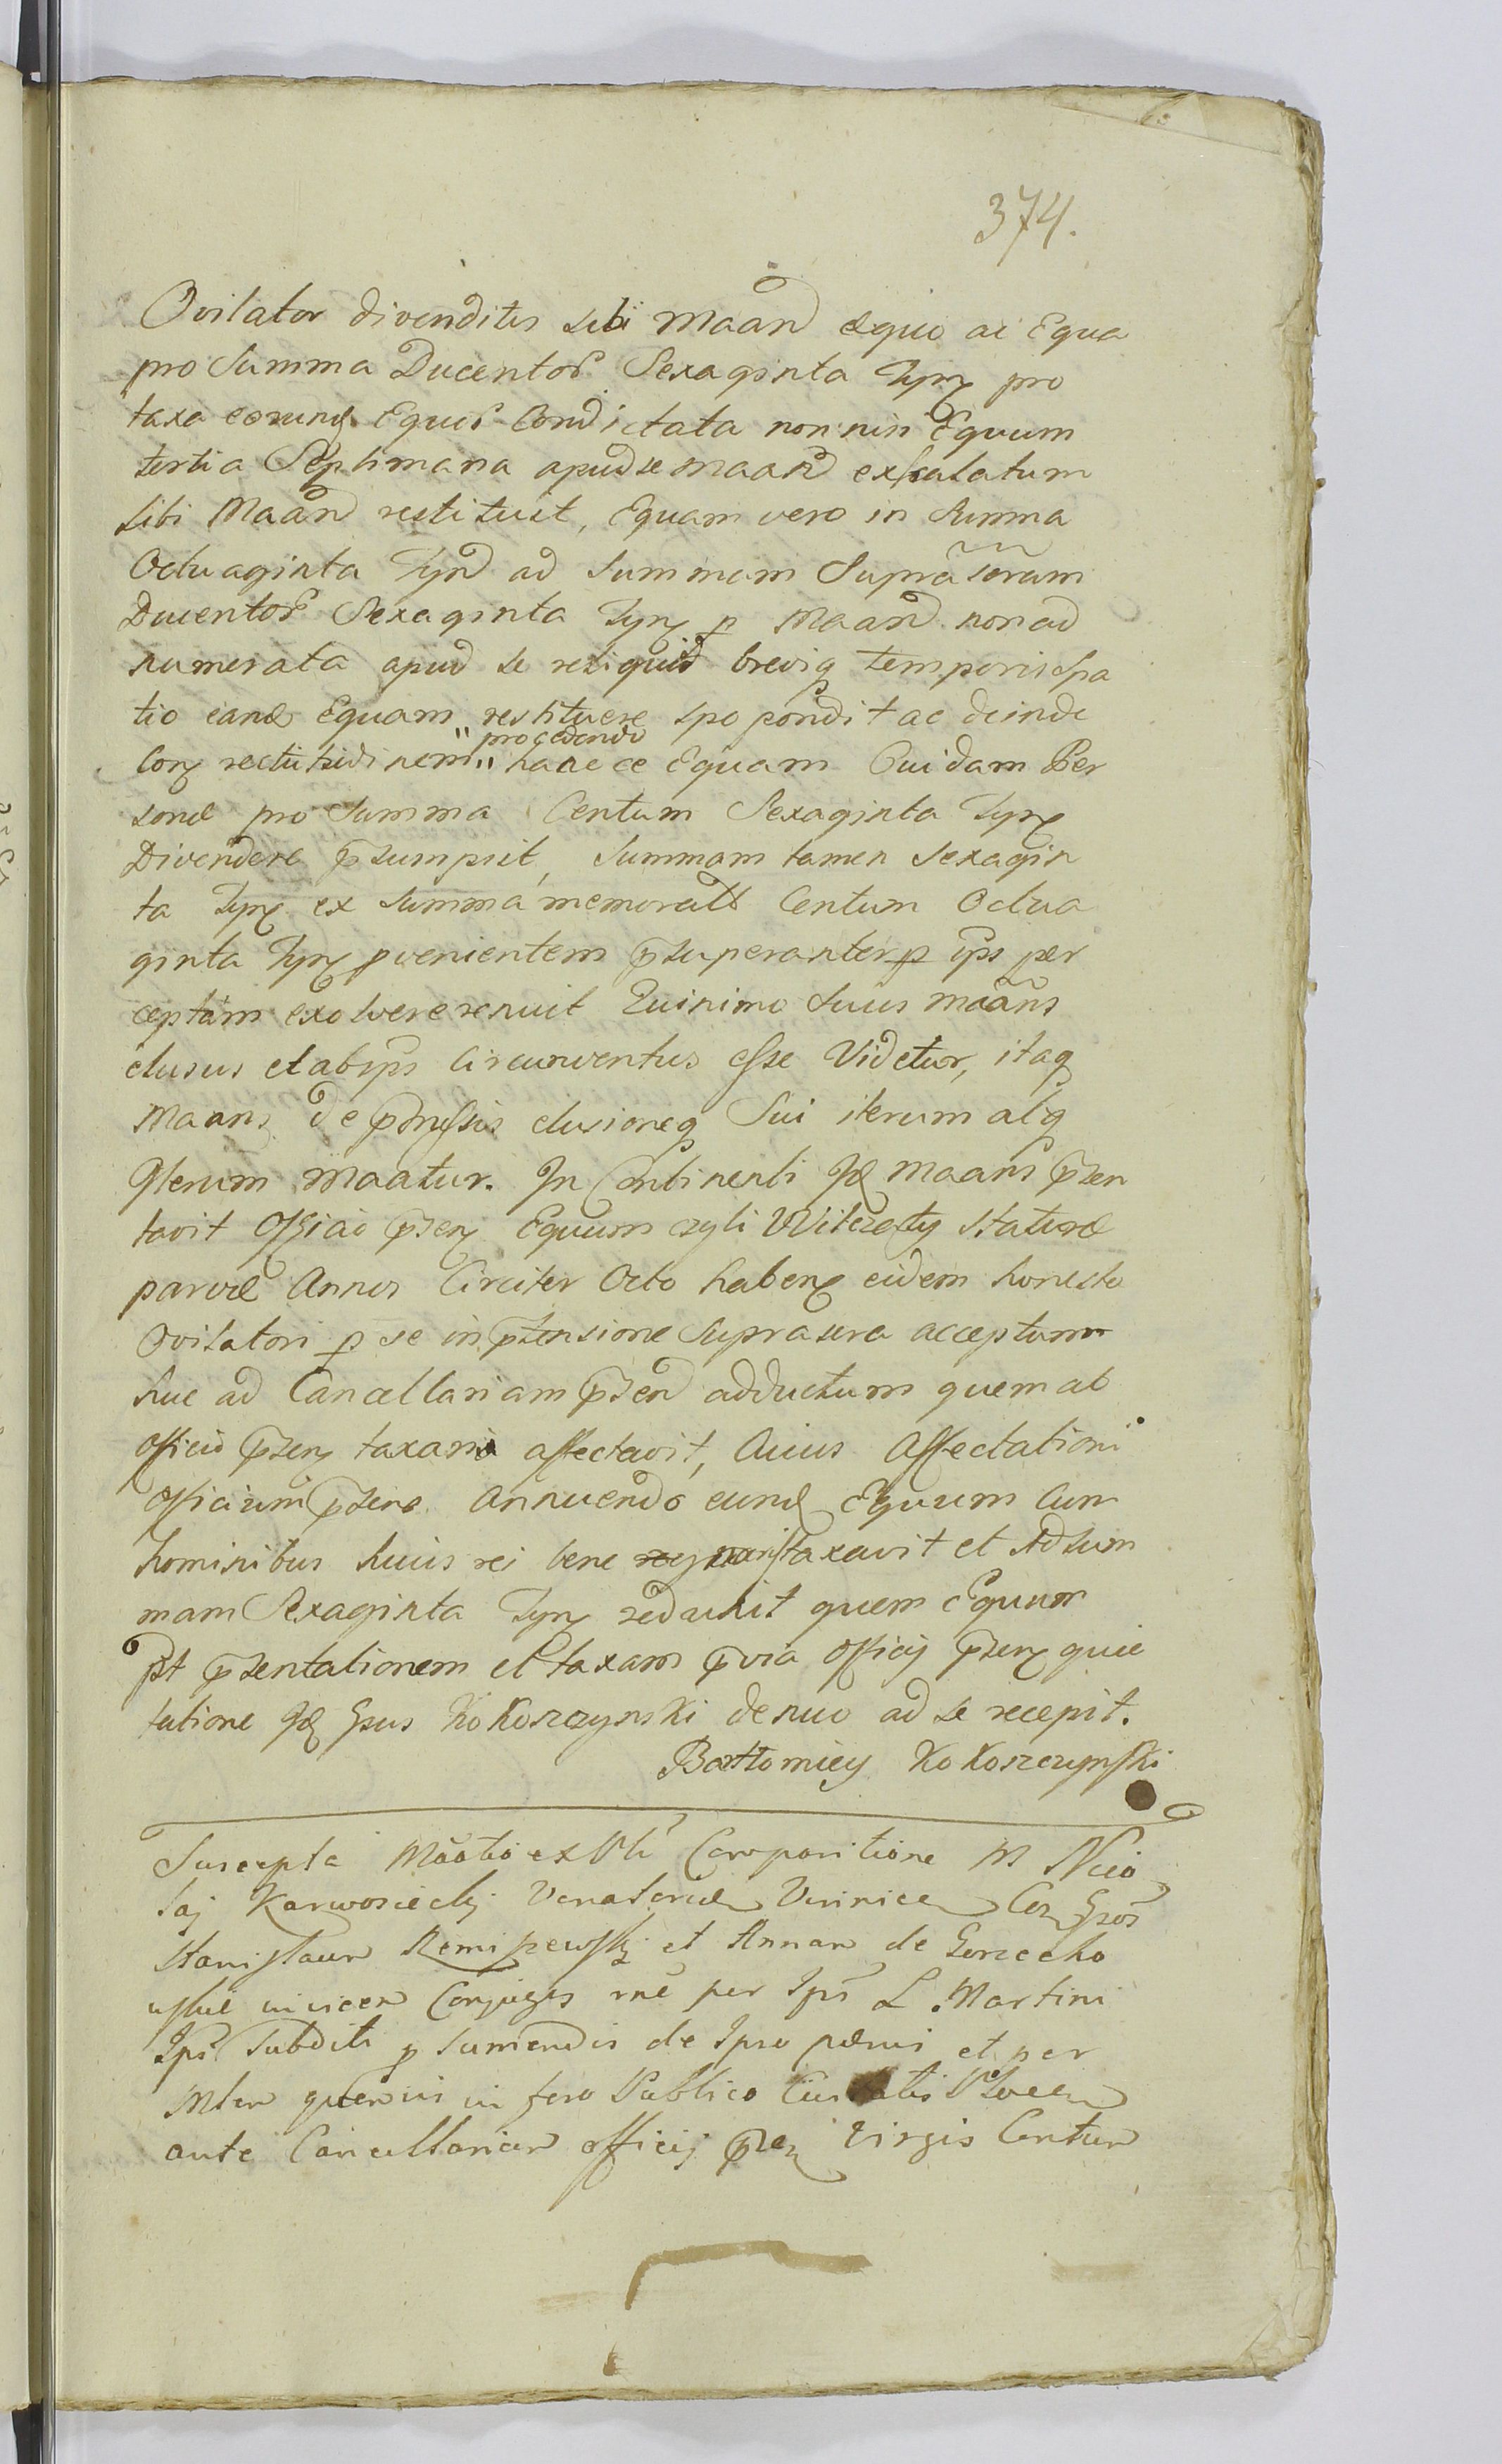 374.
Ovilator divenditis sibi Maan̄d equo ac Equa
pro Summa Ducentor Sexaginta Tynf pro
taxa eorund Equor Condictata non nisi Equum
tertia Septimana apud se Maand
sibi Maand restituit, Equam vero in Summa
Octuaginta Tynf ad Summam
Ducentor Sexaginta Tynf p Maand non ad
numerata apud se reliquit breviq temporis spa
tio eand Equam restituere spopondit ac deinde
Con rectitudinem "procedendo" hance Equam Cuidam Per
sonæ pro Summa Centum Sexaginta Tynf
Divendere p̄sumpsit, Summam tamen sexagin
ta Tynf ex Summa memorata Centum Octua
ginta Tynf pvenientem p̄superanter p ips per
ceptam exolvere renuit Quinimo Suus Maans
elusus et ab ips Circumventus esse Videtur, itaq
Maans de p̄missis elusioneq Sui iterum atq
Iterum Maatur. In Continenti Id Maans p̄sen
tavit Officio p̄sen Equum szyli Wilczaty Staturæ
parvæ Annos Circiter Octo haben eidem honesto
Ovilatori p se in p̄tensione Suprasera acceptum
huc ad Cancellariam p̄send adductum quem ab
Officio p̄sen taxari affectavit, Cuius Affectationi
Officium p̄sens Annuendo eund Equum Cum
hominibus huius rei bene taxavit et Ad Sum
mam Sexaginta Tynf reduxit quem Equum
Pst p̄sentationem et taxam p̄via Officij p̄sen quie
tatione Id Gsus Kokoszczynski denuo ad se recepit.
Bartłomiey Kokoszczynski
Suscepta Maatio ex Compositione M Nico
laj Karwosiecky Venatoris Vinnicen Con Gsos
Stanislaum Rempiewsky et Annam de
invicem Conjuges per Ips L. Martini
Ips Subditi p Sumendis de Ipso pœnis et per
Mlem quemvis in foro Publico Plocen
ante Cancellariam officij p̄sen Virgis Centum